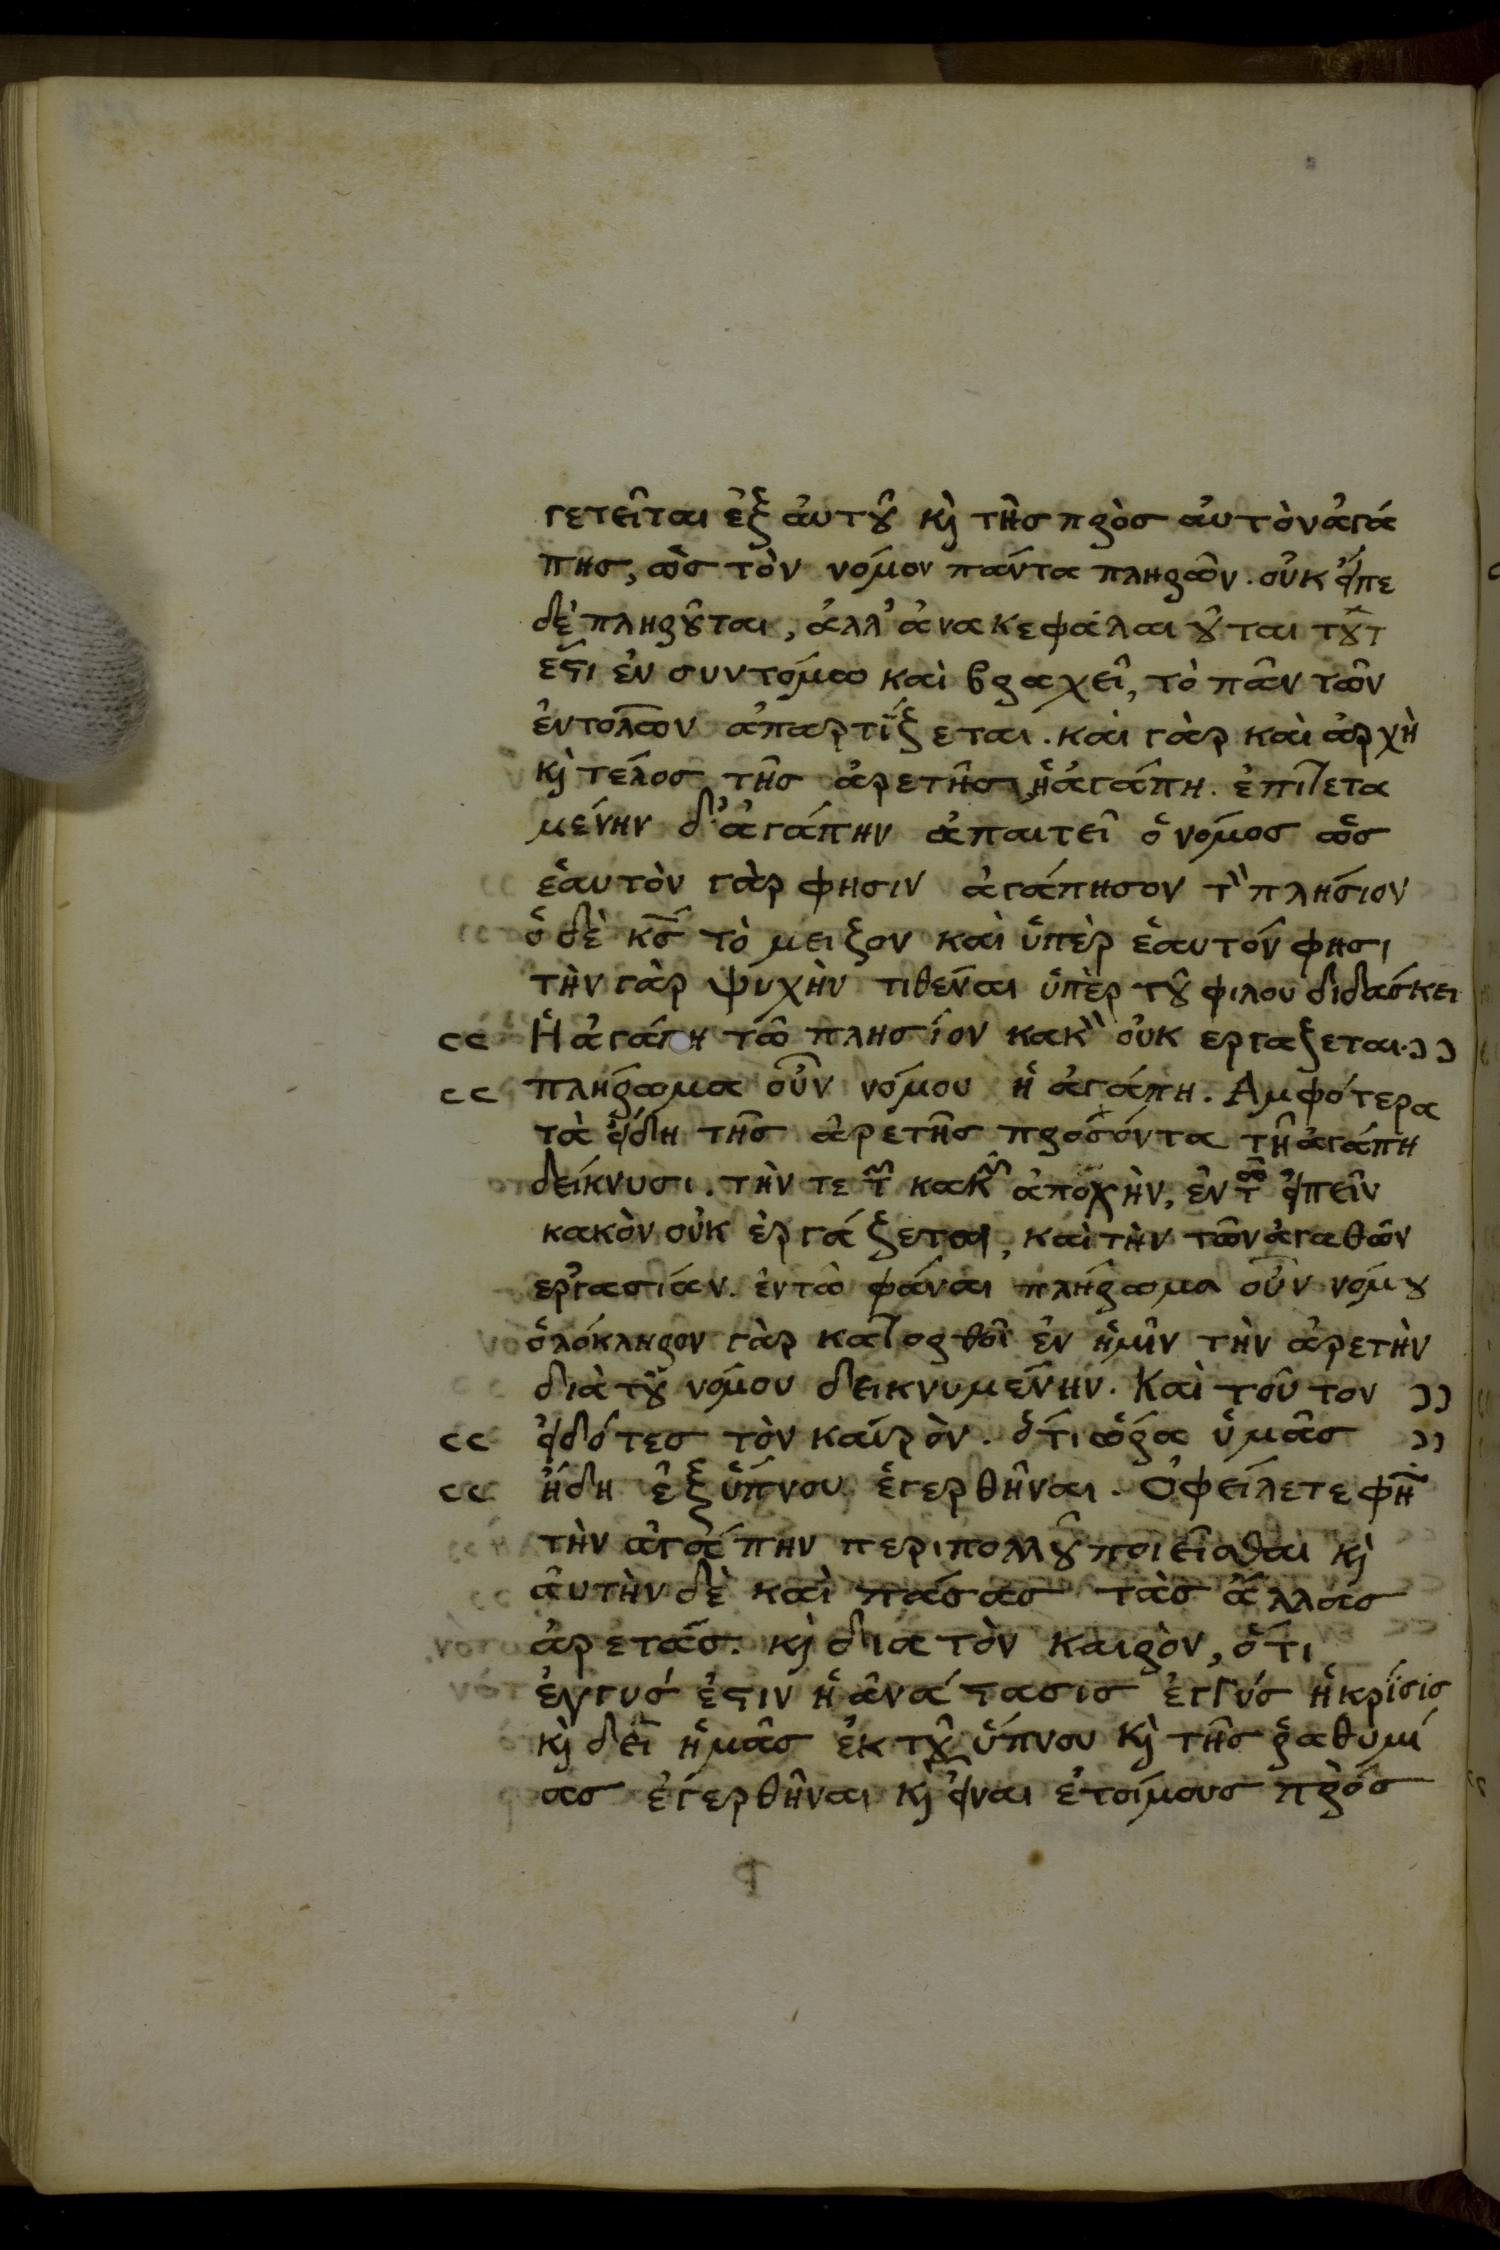 γετεῖται ἐξ ἀυτȣ͂ κὶ τῆς πρὸς ἀυτὸν ἀγά
πης, ὡς τὸν νόμον πάντα πληρῶν. οὐκ εἶπε
δὲ πληρȣ͂ται, ἀλλ' ἀνακεφάλαιȣ͂ται τȣ͂τ
έϛι ἐν συντόμω καὶ βραχεῖ, τὸ πᾶν τῶν
ἐντολῶν ἀπαρτίζεται. καὶ γὰρ καὶ ἀρχὴ
κὶ τέλος τῆς ἀρετῆς, ἡ ἀγάπη. ἐπιτετα
μένην δ' ἀγάπην ἀπαιτεῖ ὁ νόμος ὡς
ἑαυτὸν γὰρ φησιν ἀγάπησον τ̀ πλησίον
ὁ δὲ κ̅ς̅ τὸ μειζον καὶ ὑπὲρ ἑαυτόν φησι
τὴν γὰρ ψυχὴν τιθέναι ὑπὲρ τȣ͂ φιλου διδάσκει
Ἡ ἀγάπη τῶ πλησίον κακ̀ οὐκ εργαζεται.
πλήρωμα οὖν νόμου ἡ ἀγάπη. Αμφότερα
τὰ εἴδη τῆς ἀρετῆς προσόντα τῆ ἀγάπη
δείκνυσι. τὴν τε τ͂ κακ͂ ἀποχὴν, ἐν τῶ εἰπεῖν
κακὸν οὐκ ἐργάζεται, καὶ τὴν τῶν ἀγαθῶν
εργασίαν. ἐν τῶ φάναι πλήρωμα οὖν νόμȣ
ὁλόκληρον γὰρ κατορθοῖ ἐν ἡμῖν τὴν ἀρετὴν
διὰ τȣ͂ νόμου δεικνυμένην. Καὶ τοῦτον
εἰδότες τὸν καιρὸν. ὅτι ὥρα ὑμᾶς
ἤδη ἐξ ὕπνου ἐγερθῆναι. Ὀφείλετε φη̅
τὴν ἀγάπην περιπολλȣ͂ ποιεῖσθαι κὶ
ἀυτὴν δὲ καὶ πάσας τὰς ἄλλας
ἀρετάς. κὶ δια τὸν καιρὸν, ὅτι
ἐγγυς ἐϛιν ἡ ἀνάϛασις ἐγγύς ἡ κρίσις
κὶ δεῖ ἡμᾶς ἐκ τȣ͂ ὕπνου κὶ τῆς ῥαθυμί
ας ἐγερθῆναι κὶ εἶναι ἑτοίμους πρὸς